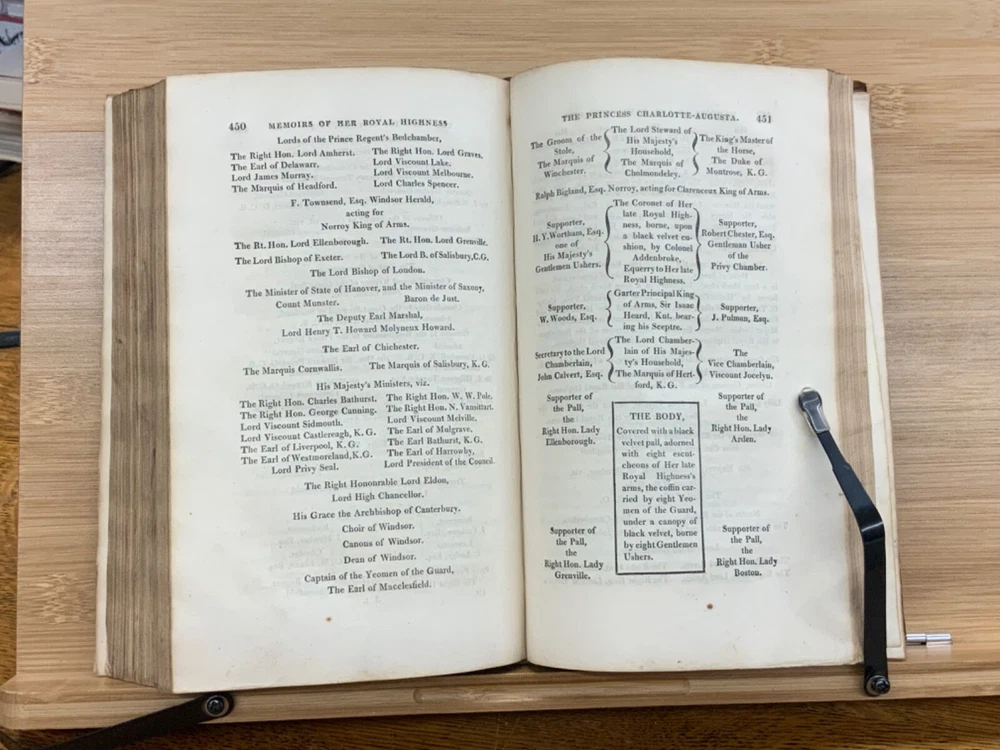 450 MEMOIRS OF HER ROYAL HIGHNESS
Lords of the Prince Regent's Bedchamber,
The Right Hon. Lord Amherst. The Right Hon. Lord Graves.
The Earl of Delawarr. Lord Viscount Lake.
Lord James Murray. Lord Viscount Melbourne.
The Marquis of Headford. Lord Charles Spencer.
F. Townsend, Esq. Windsor Herald,
acting for
Norroy King of Arms.
The Rt. Hon. Lord Ellenborough. The Rt. Hon. Lord Grenville.
The Lord Bishop of Exeter. The Lord B. of Salisbury, C.G.
The Lord Bishop of London.
The Minister of State of Hanover, and the Minister of Saxony,
Count Munster. Baron de Just.
The Deputy Earl Marshal,
Lord Henry T. Howard Molyneux Howard.
The Earl of Chichester.
The Marquis Cornwallis. The Marquis of Salisbury, K. G.
His Majesty's Ministers, viz.
The Right Hon. Charles Bathurst. The Right Hon. W. W. Pole.
The Right Hon. George Canning. The Right Hon. N. Vansittart.
Lord Viscount Sidmouth. Lord Viscount Melville.
Lord Viscount Castlereagh, K. G. The Earl of Mulgrave.
The Earl of Liverpool, K. G. The Earl Bathurst, K. G.
The Earl of Westmoreland, K.G. The Earl of Harrowby,
Lord Privy Seal. Lord President of the Council.
The Right Honourable Lord Eldon,
Lord High Chancellor.
His Grace the Archbishop of Canterbury.
Choir of Windsor.
Canons of Windsor.
Dean of Windsor.
Captain of the Yeomen of the Guard,
The Earl of Macclesfield.
THE PRINCESS CHARLOTTE-AUGUSTA. 451
The Groom of the
Stole,
The Marquis of
Winchester.
The Lord Steward of
His Majesty's
Household,
The Marquis of
Cholmondeley.
The King's Master of
the Horse,
The Duke of
Montrose, K. G.
Ralph Bigland, Esq. Norroy, acting for Clarenceux King of Arms.
Supporter,
H. Y. Wortham, Esq.
one of
His Majesty's
Gentlemen Ushers.
The Coronet of Her
late Royal High-
ness, borne, upon
a black velvet cu-
shion, by Colonel
Addenbroke,
Equerry to Her late
Royal Highness.
Supporter,
Robert Chester, Esq.
Gentleman Usher
of the
Privy Chamber.
Supporter,
W. Woods, Esq.
Garter Principal King
of Arms, Sir Isaac
Heard, Knt. bear-
ing his Sceptre.
Supporter,
J. Pulman, Esq.
Secretary to the Lord
Chamberlain,
John Calvert, Esq.
The Lord Chamber-
lain of His Majes-
ty's Household,
The Marquis of Hert-
ford, K. G.
The
Vice Chamberlain,
Viscount Jocelyn.
Supporter of
the Pall,
the
Right Hon. Lady
Ellenborough.
THE BODY,
Covered with a black
velvet pall, adorned
with eight escut-
cheons of Her late
Royal Highness's
arms, the coffin car-
ried by eight Yeo-
men of the Guard,
under a canopy of
black velvet, borne
by eight Gentlemen
Ushers.
Supporter of
the Pall,
the
Right Hon. Lady
Arden.
Supporter of
the Pall,
the
Right Hon. Lady
Grenville.
Supporter of
the Pall,
the
Right Hon. Lady
Boston.